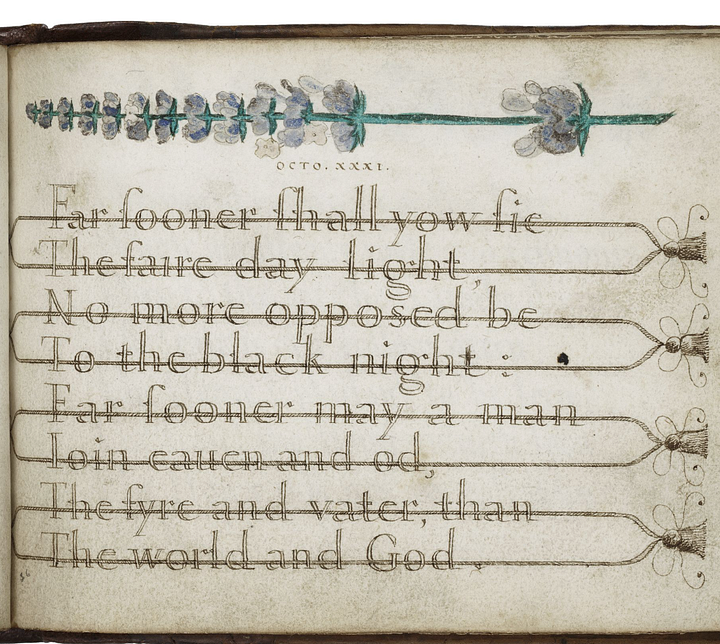 OCTO. XXXI.
Far ſooner ſhall yow ſie
The faire day light,
No more opposed be
To the black night :
Far ſooner may a man
Ioin eauen and od,
The fyre and vater, than
The world and God .